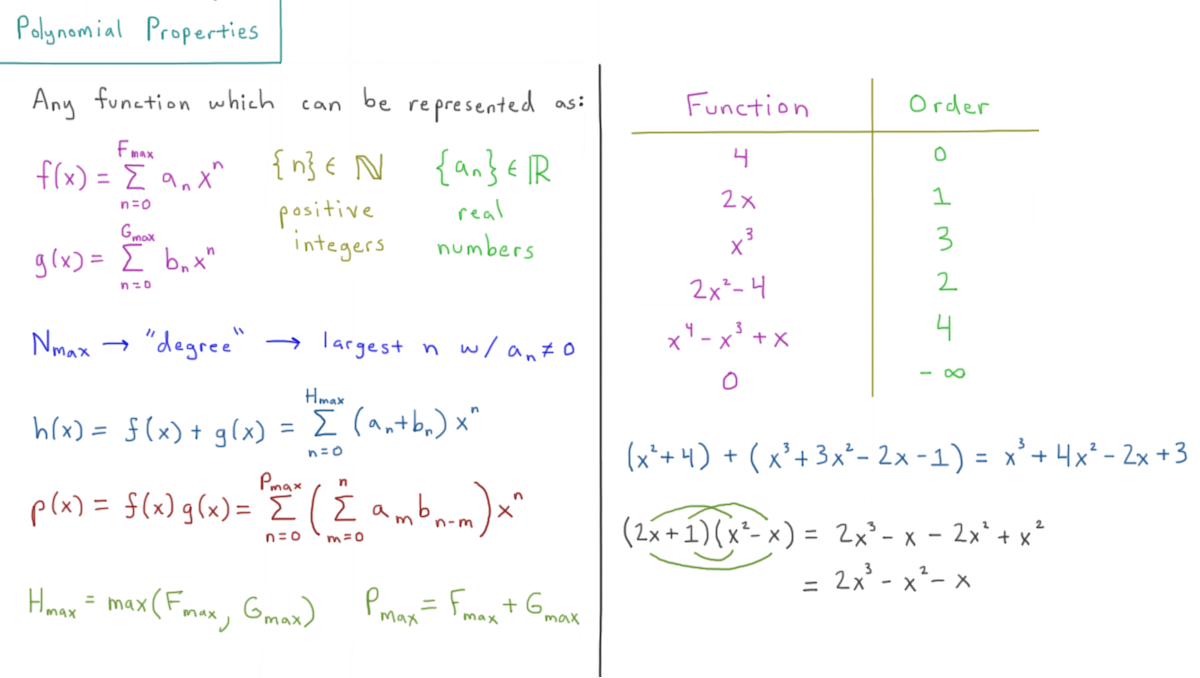 Polynomial Properties
Any function which can be represented as:
f(x) = Σ_{n=0}^{F_max} a_n x^n {n} ∈ ℕ {a_n} ∈ ℝ
positive integers real numbers
g(x) = Σ_{n=0}^{G_max} b_n x^n
N_max → "degree" → largest n w/ a_n ≠ 0
h(x) = f(x) + g(x) = Σ_{n=0}^{H_max} (a_n + b_n) x^n
p(x) = f(x) g(x) = Σ_{n=0}^{P_max} ( Σ_{m=0}^{n} a_m b_{n-m} ) x^n
H_max = max(F_max, G_max) P_max = F_max + G_max
Function Order
4 0
2x 1
x³ 3
2x² - 4 2
x⁴ - x³ + x 4
0 - ∞
(x² + 4) + (x³ + 3x² - 2x - 1) = x³ + 4x² - 2x + 3
(2x + 1)(x² - x) = 2x³ - x - 2x² + x²
= 2x³ - x² - x